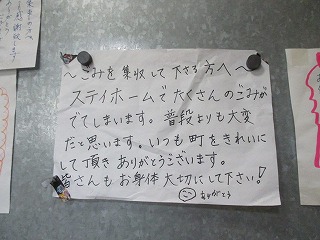 ～ごみを集収して下さる方へ～
ステイホームでたくさんのごみが
でてしまいます。普段よりも大変
だと思います。いつも町をきれいに
して頂きありがとうございます。
皆さんもお身体大切にして下さい!
ありがとう